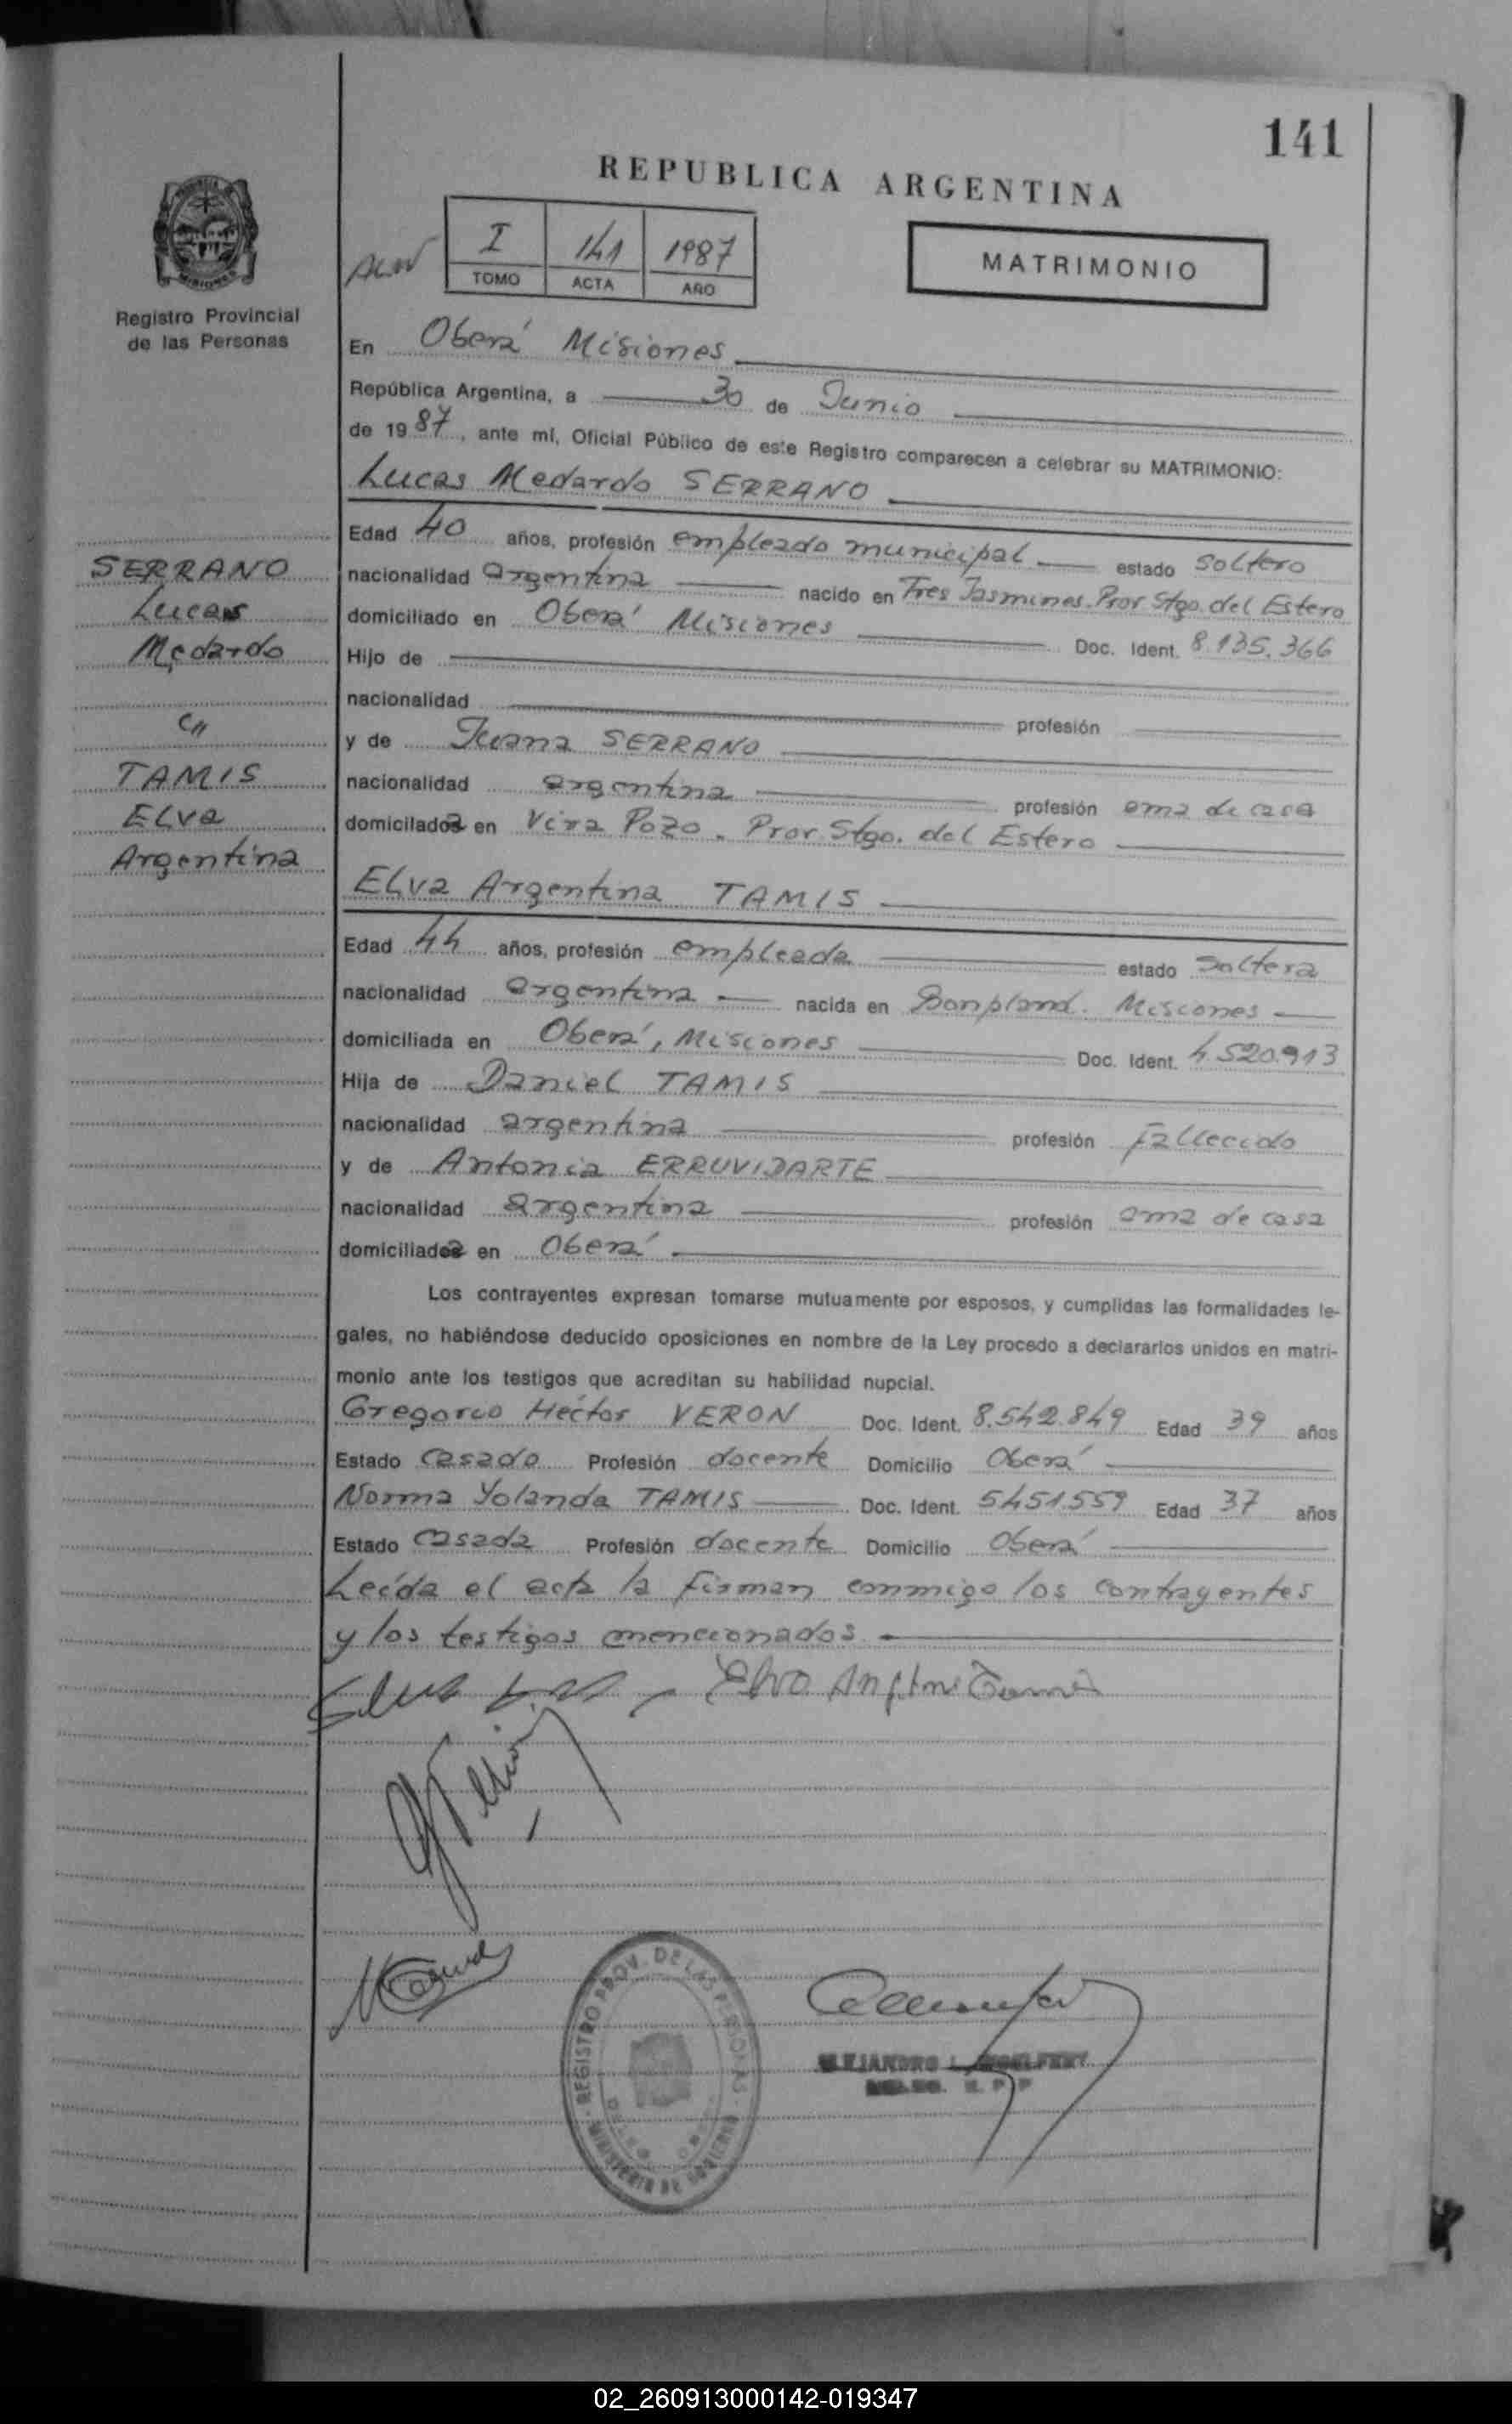 141
REPUBLICA ARGENTINA
I 141 1987
TOMO ACTA AÑO
MATRIMONIO
Registro Provincial
de las Personas
En Oberá Misiones
República Argentina, a 30 de Junio
de 1987, ante mí, Oficial Público de este Registro comparecen a celebrar su MATRIMONIO:
Lucas Medardo SERRANO
Edad 40 años, profesión empleado municipal estado soltero
nacionalidad argentina nacido en Tres Jasmines. Prov Stgo. del Estero
domiciliado en Oberá Misiones Doc. Ident. 8.135.366
Hijo de
nacionalidad profesión
y de Juana SERRANO
nacionalidad argentina profesión ama de casa
domicilada en Vira Pozo. Prov. Stgo. del Estero
SERRANO
Lucas
Medardo
c//
TAMIS
Elva
Argentina
Elva Argentina TAMIS
Edad 44 años, profesión empleada estado soltera
nacionalidad argentina nacida en Bonpland. Misiones
domiciliada en Oberá, Misiones Doc. Ident. 4.520.913
Hija de Daniel TAMIS
nacionalidad argentina profesión Fallecido
y de Antonia ERRUVIDARTE
nacionalidad argentina profesión ama de casa
domiciliada en Oberá
Los contrayentes expresan tomarse mutuamente por esposos, y cumplidas las formalidades le-
gales, no habiéndose deducido oposiciones en nombre de la Ley procedo a declararlos unidos en matri-
monio ante los testigos que acreditan su habilidad nupcial.
Gregorio Héctor VERON Doc. Ident. 8.542.849 Edad 39 años
Estado casado Profesión docente Domicilio Oberá
Norma Yolanda TAMIS Doc. Ident. 5451.559 Edad 37 años
Estado casada Profesión docente Domicilio Oberá
Leída el acta la firman conmigo los contrayentes
y los testigos mencionados
REGISTRO PROV. DE LAS PERSONAS
MINISTERIO DE GOBIERNO
02_260913000142-019347